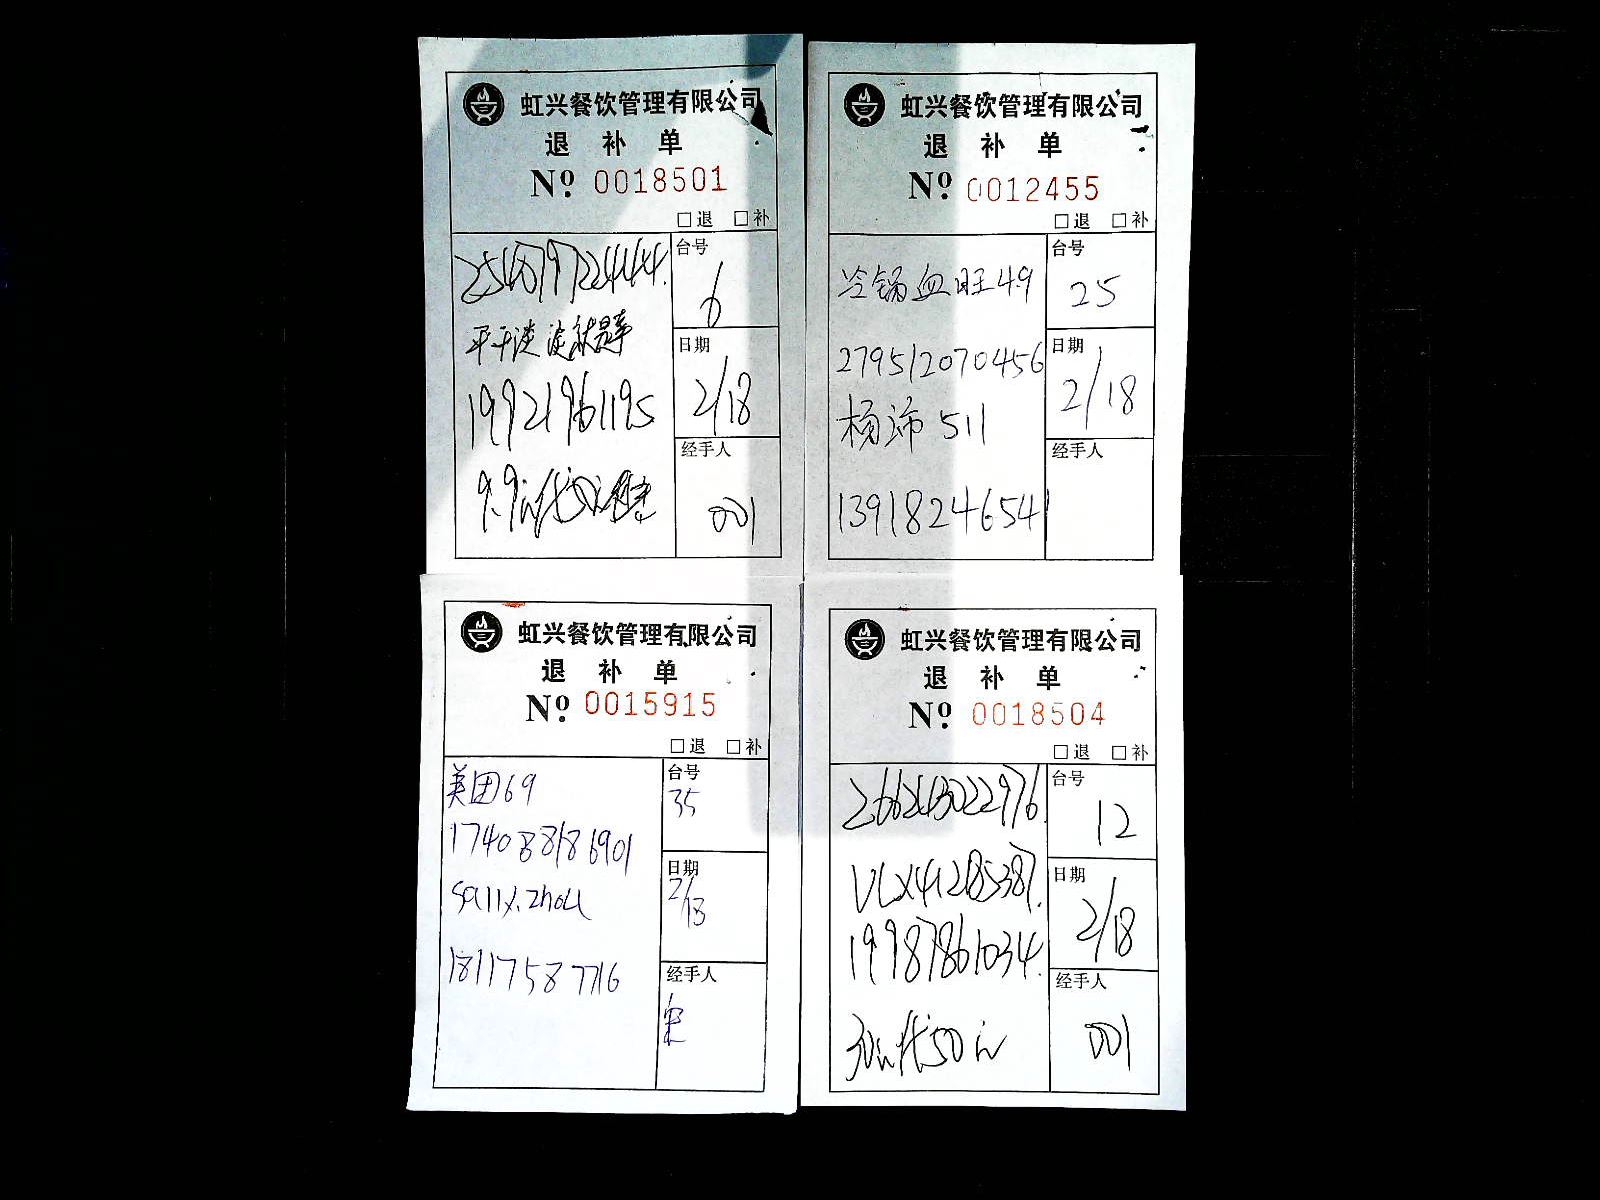 虹兴餐饮管理有限公司
退 补 单
Nº 0018501
□退 □补
台号
6
平平淡淡就是幸
日期
2/18
19921961195
经手人
9.9元代50元
001
虹兴餐饮管理有限公司
退 补 单
Nº 0012455
□退 □补
冷锅血旺49
台号
25
279512070456
日期
2/18
杨沛 511
经手人
13918246541
虹兴餐饮管理有限公司
退 补 单
Nº 0015915
□退 □补
美团69
台号
35
174088186901
日期
2/13
sally.zhou
18117587716
经手人
虹兴餐饮管理有限公司
退 补 单
Nº 0018504
□退 □补
266243022976
台号
12
VLX412185387.
日期
2/18
19987861034.
经手人
30元代50元
001